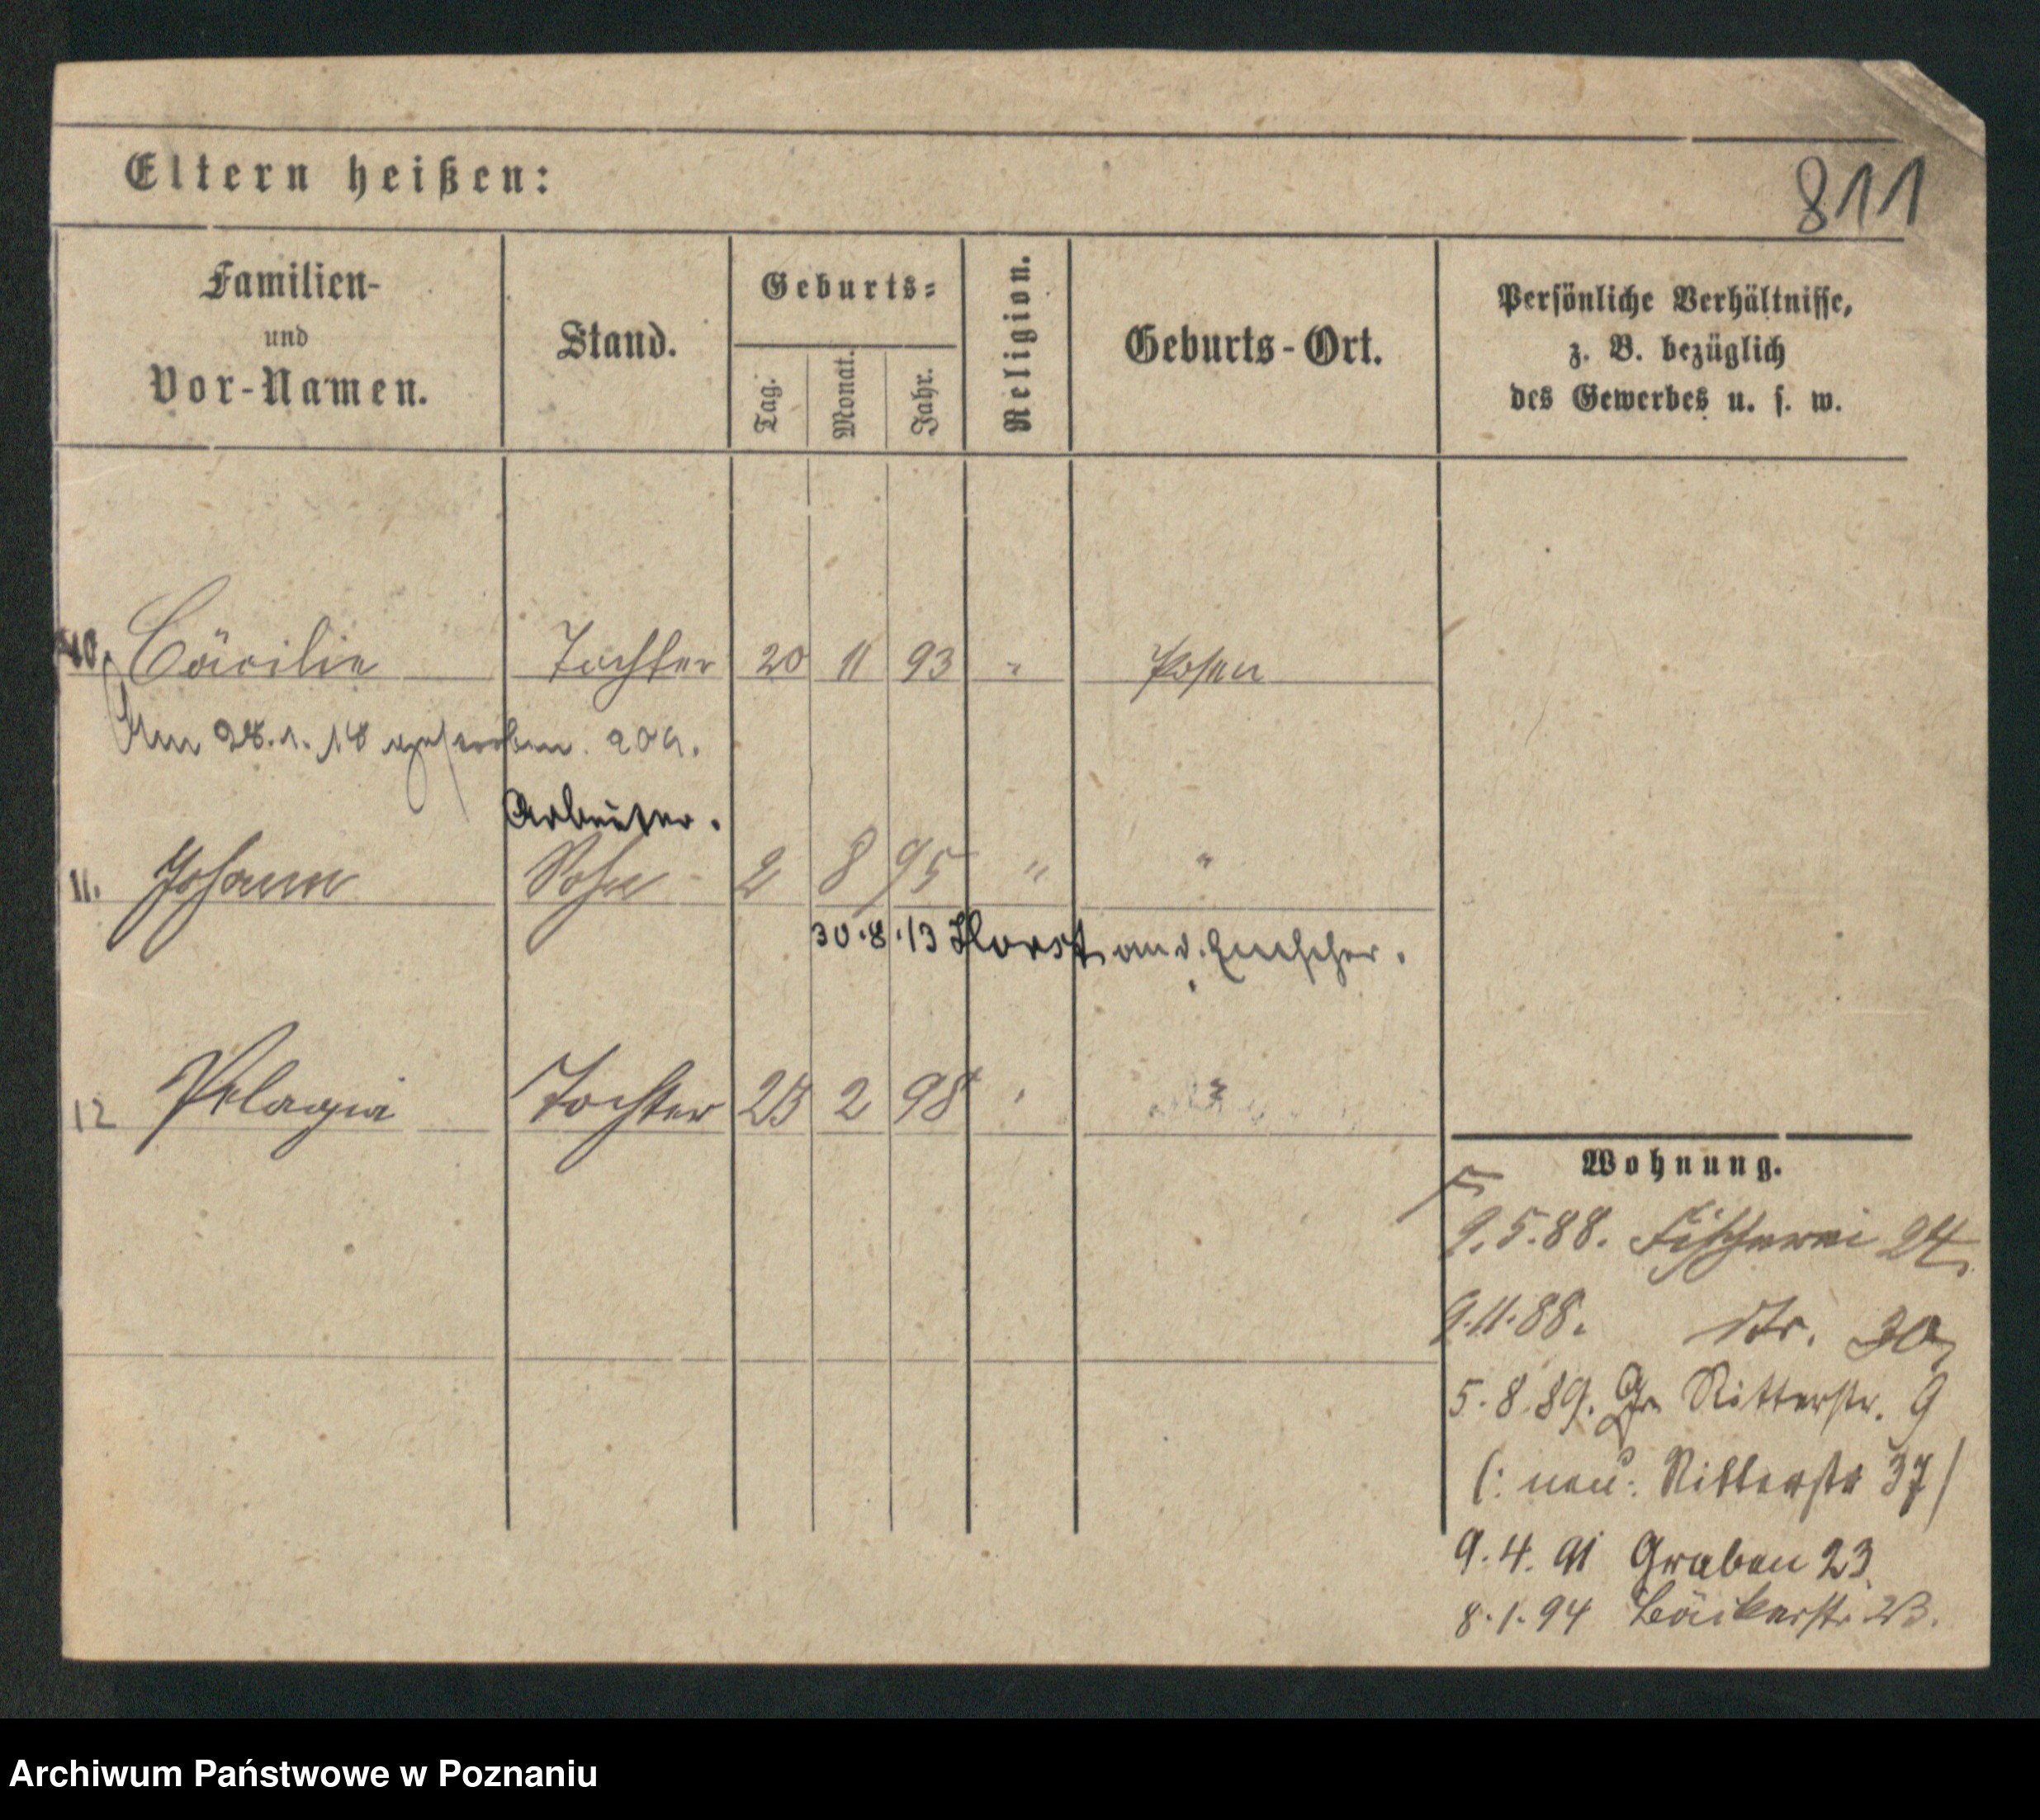 Eltern heißen:
811
Familien-
und
Vor-Namen.
Stand.
Geburts=
Tag.
Monat.
Jahr.
Religion.
Geburts-Ort.
Persönliche Verhältnisse,
z. B. bezüglich
des Gewerbes u. s. w.
10. Cäcilie Tochter 20 11 93 " Posen
Am 28.1.18 gestorben. 209.
Arbeiter.
11. Johann Sohn 2 8 95 " "
30.8.13 Horst an d. Emscher.
12 Pelagia Tochter 25 2 98 " "
Wohnung.
9.5.88. Fischerei 24,
9.11.88. Str. 30,
5.8.89. Gr. Ritterstr. 9
(: neu: Ritterstr 37)
9.4.91 Graben 23.
8.1.94 Bäckerstr. 23.
Archiwum Państwowe w Poznaniu